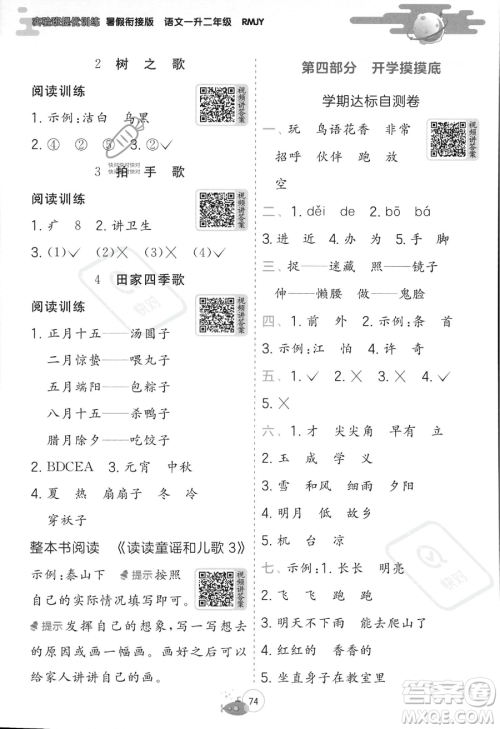 实验班提优训练 暑假衔接版 语文一升二年级 RMJY
2 树之歌
阅读训练
1. 示例:洁白 乌黑
2. ④ ② ⑤ ①
3. ②
3 拍手歌
阅读训练
1. 疒 8 2. 讲卫生
3. (1)✓ (2)✕
4 田家四季歌
阅读训练
1. 正月十五——汤圆子
二月惊蛰——喂丸子
五月端阳——包粽子
八月中秋——杀鸭子
腊月除夕——吃饺子
2. BDCEA 3. 元宵 中秋
4. 夏 热 扇扇子 扇子
穿袄子
整本书阅读 《读读童谣和儿歌 3》
示例:泰山下 提示按照
自己的实际情况填写即可。
提示发挥自己的想象,写写
自己的感受,画一幅画。可以
给家人讲讲自己的画。
视频讲答案
视频讲答案
视频讲答案
视频讲答案
第四部分 开学摸摸底
学期达标自测卷
一、玩 鸟语花香 非常
招呼 伙伴 跑 放
空
二、1. děi de 2. bō bá
3. 进 近 4. 办 为
三、捉——迷藏 照——镜子
伸——懒腰 做——鬼脸
四、1. 前 外 2. 示例:条 首
3. 示例:江 怕 4. 许 奇
五、1. ✓ 2. ✕ 3. ✕ 4. ✓
5. ✕
六、1. 才 尖尖角 早有 立
2. 玉 成 学 义
3. 雪 和 风 细
4. 自由自在
5. 机 台 凉
七、示例:1. 长长 明亮
2. 飞 飞 跑 跑
3. 明天不下雨 可以去爬山
4. 红红的 香香的
5. 清清的河水 清清的
视频讲答案
快对
74